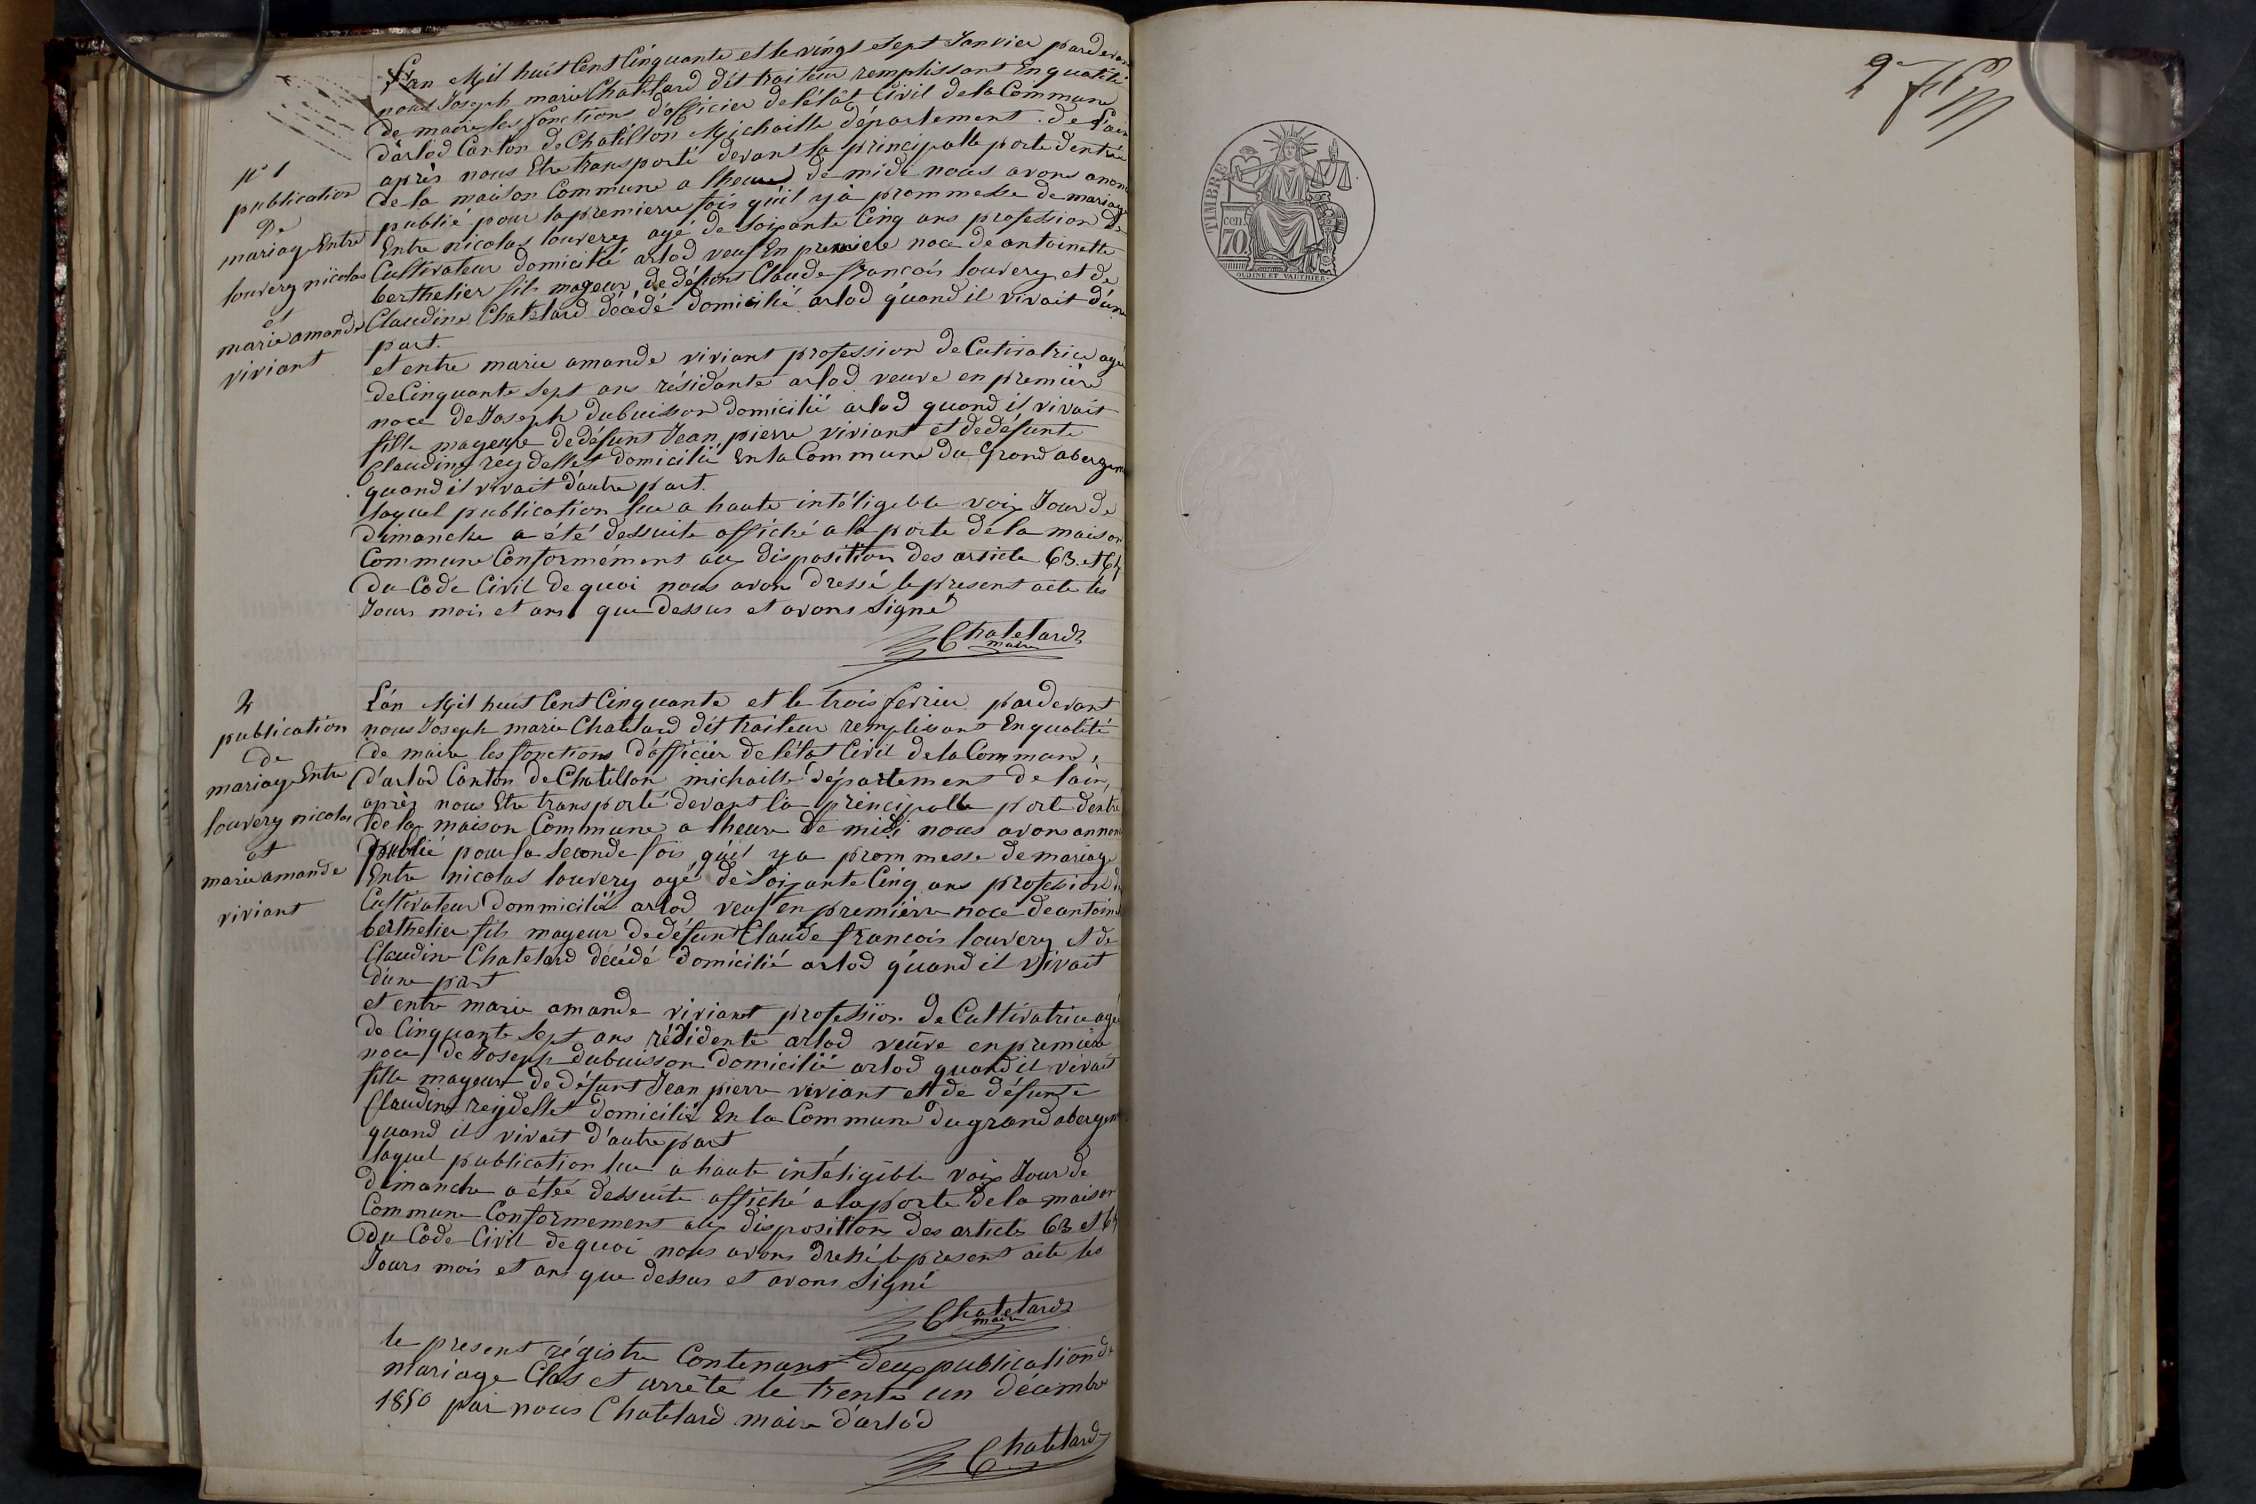 n° 1
publication
De
mariage Entre
louvery nicolas
et
marie amande
viviant
L'an Mil huit Cent Cinquante et le vingt et sept Janvier pardevan
nous Joseph marie Chatelard dit traiteur remplissant En qualité
de maire les fonctions d'officier de l'état Civil de la Commune
d'arlod Canton de Chatillon Michaille département de l'ain
après nous Etre transporté devant la principalle porte d'entrée
de la maison Commune a lheure de midi nous avons anon
publié pour la premierre fois qu'il y à prommesse de mariage
Entre nicolas louvery agé de soixante Cinq ans profession de
Cultivateur domicilié arlod veuf En premiere noce de antoinette
berthelier fils mageur de défunt Claude francois louvery et de
Claudine Chatelard décédé domicilié arlod quand il vivait d'une
part.
et entre marie amande viviant profession de Cutivatrice agé
de Cinquante sept ans résidante arlod veuve en première
noce de Joseph dubuisson domicilié arlod quand il vivait
fille mageure de défunt Jean pierre viviant et de défunte
Claudine reydellet domicilié En la Commune du Grand aberger
quand il vivait d'autre part.
laquel publication lue a haute intéligeble voix Jour de
dimanche a été dessuite affiché a la porte de la maison
Commune Conformément aux disposition des article 63. et 64
du Code Civil de quoi nous avon dressé le present acte les
Jours mois et ans que dessus et avons signé
Chatelard
maire
2
publication
de
mariage Entre
louvery nicolas
et
marie amande
viviant
L'an Mil huit Cent Cinquante et le trois fevrier pardevant
nous Joseph marie Chatelard dit traiteur remplissant En qualité
de maire les fonctions d'officier de l'état Civil de la Commune
d'arlod Canton de Chatillon michaille département de l'ain,
après nous Etre transporté devant la principalle porte dentré
de la maison Commune a lheure de midi nous avons annon
publié pour la seconde fois qu'il y a prommesse de mariage
Entre nicolas louvery agé de soixante Cinq ans profession de
Cultivateur dommicilié arlod veuf en premièrre noce de antoine
berthelier fils mageur de défunt Claude francois louvery et de
Claudine Chatelard décédé domicilié arlod quand il vivait
d'une part
et entre marie amande viviant profession de Cultivatrice agé
de Cinquante sept ans résidente arlod veuve en première
noce de Joseph dubuisson domicilié arlod quand il vivait
fille mageure de défunt Jean pierre viviant et de défunte
Claudine reydellet domicilié En la Commune du grand abergem
quand il vivait d'autre part
laquel publication lue a haute intéligible voix Jour de
dimanche a étée dessuite affiché a la porte de la maison
Commune Conformement aux disposition des article 63 et 64
du Code Civil de quoi nous avons dressé le present acte les
Jours mois et ans que dessus et avons signé
Chatelard
maire
le present régistre Contenant deux publication de
mariage Clos et arrêté le trente un décembre
1850 par nous Chatelard maire d'arlod
Chatelard
2
TIMBRE
70 cen
OUDINE ET VAUTHIER